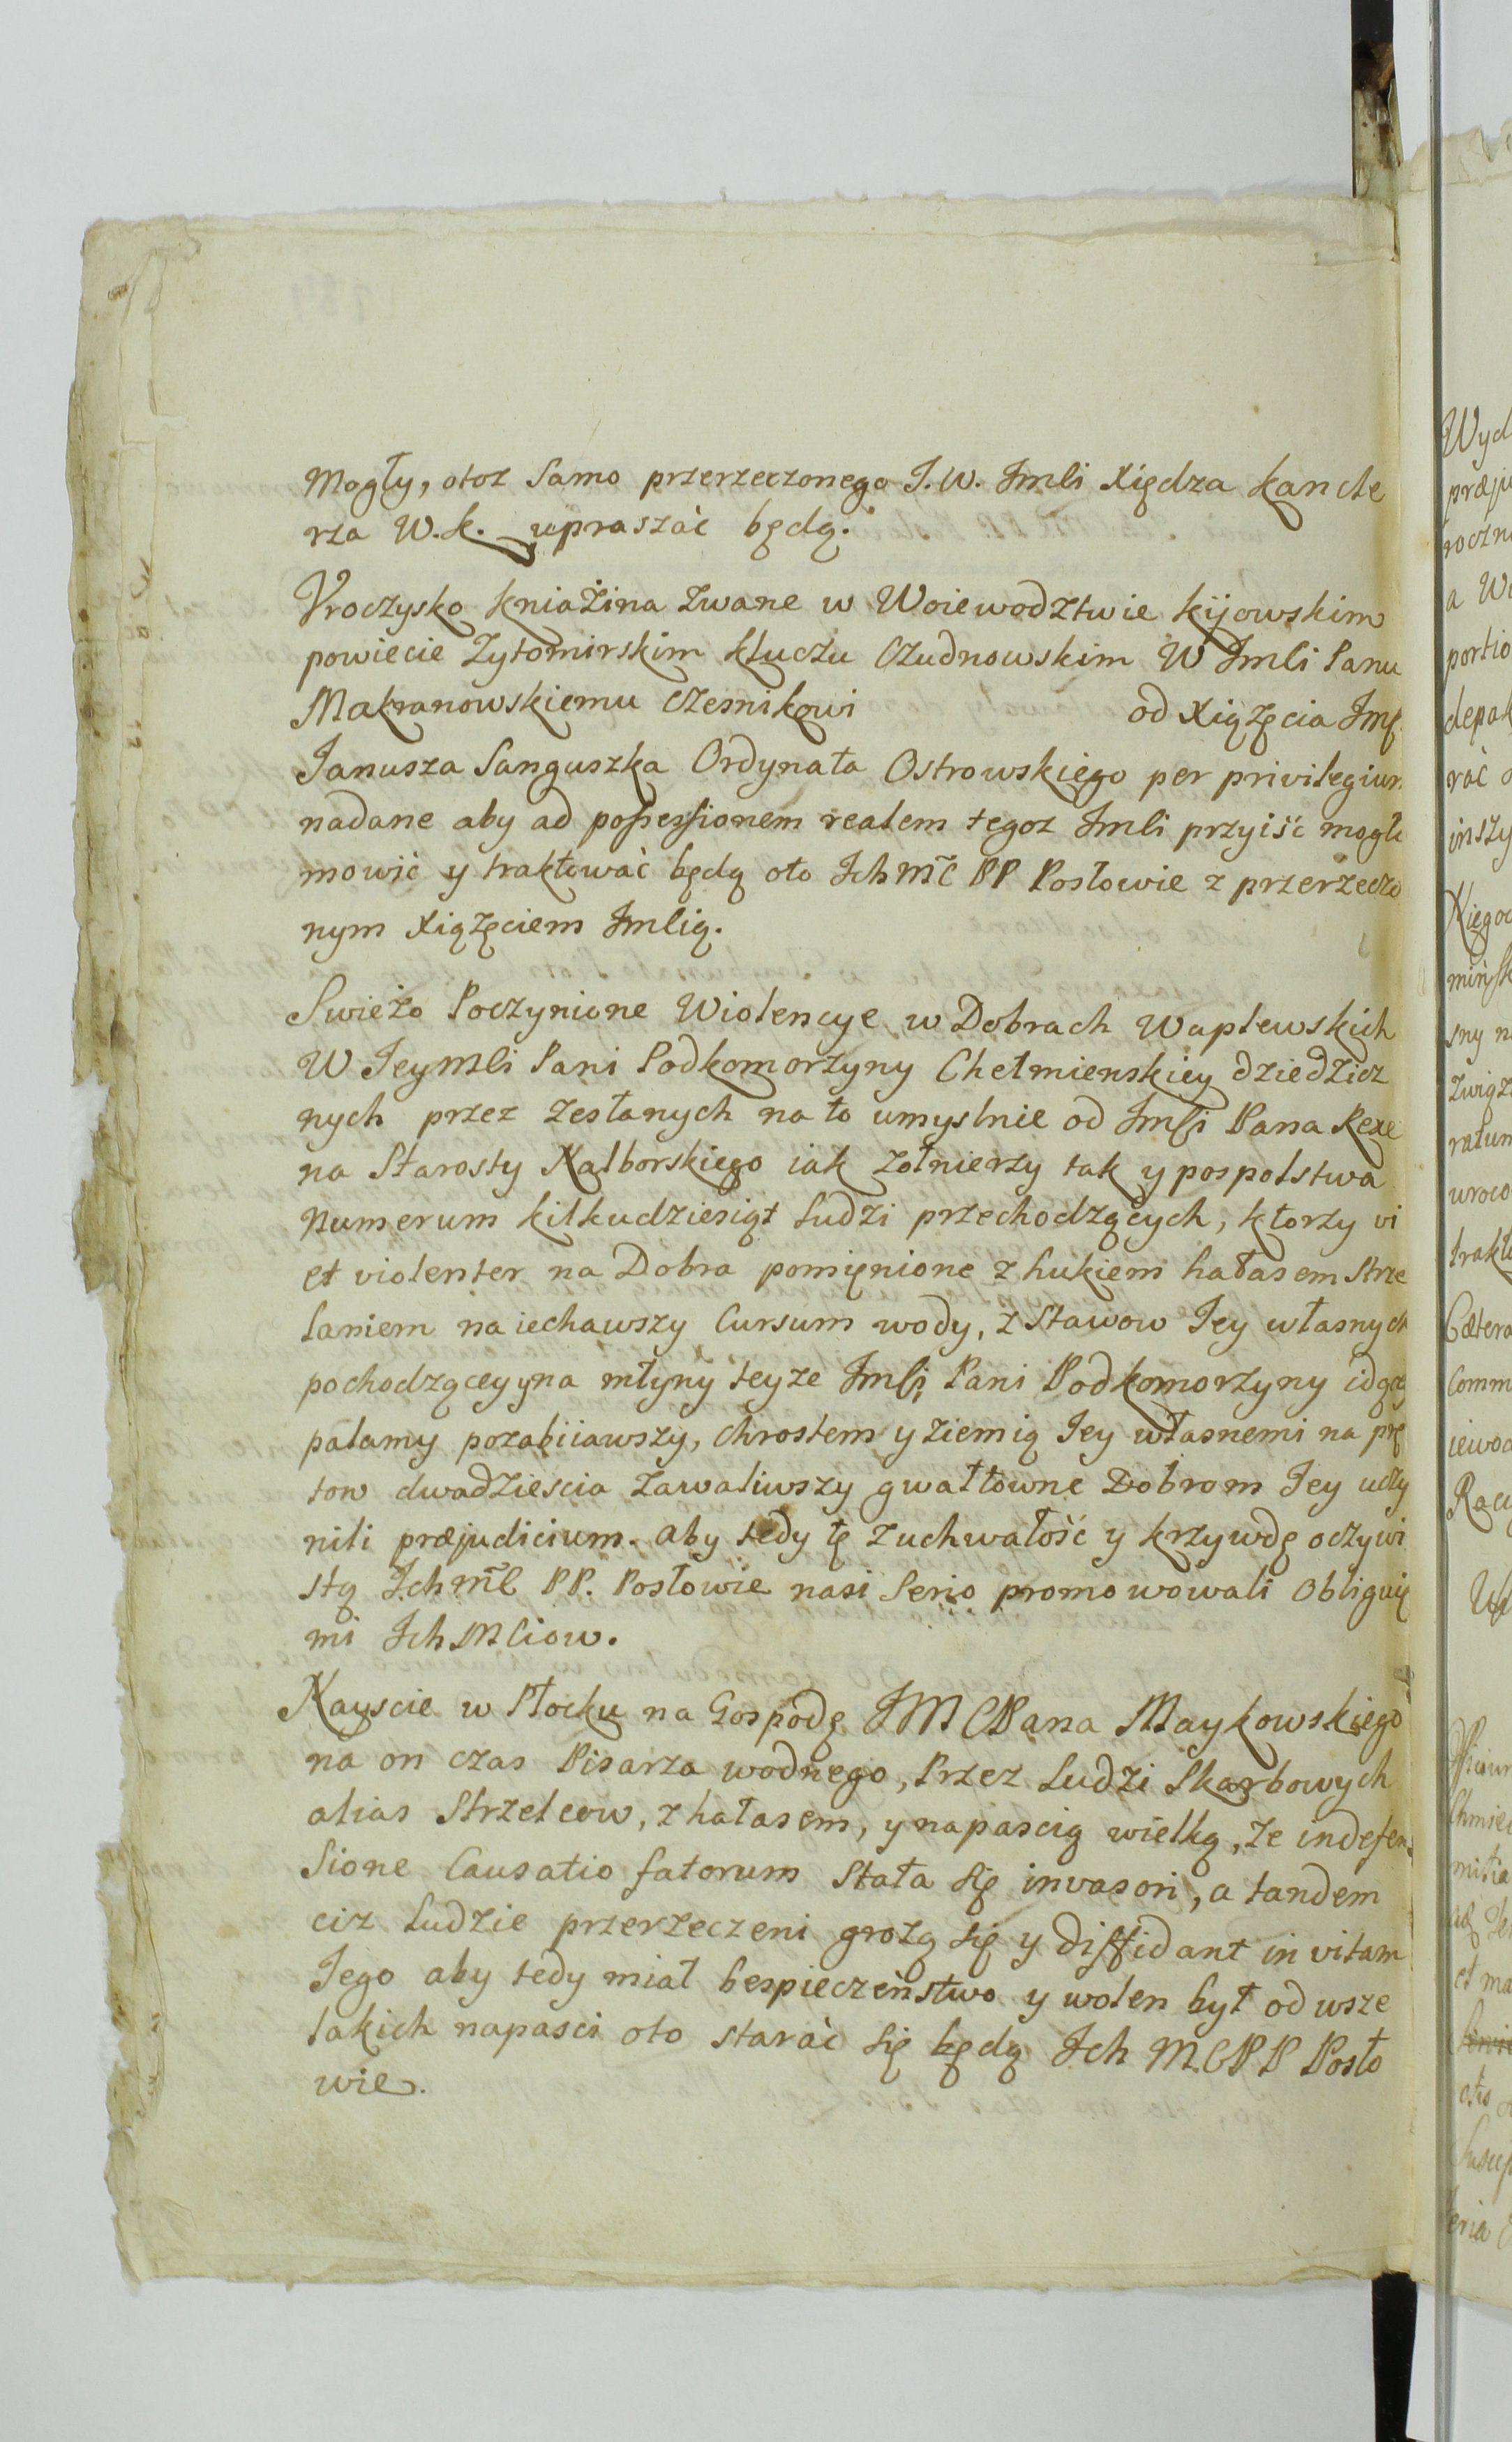 Mogły, otoz samo przerzeczonego J.W. Jmści Xiędza Kancle
rza W.K. upraszać będą.
Vroczysko Kniażina zwane w Woiewodztwie Kijowskim
powiecie Zytomirskim kluczu Czudnowskim W Jmści Panu
Makranowskiemu Czesnikowi od Xiążęcia Jmę
Janusza Sanguszka Ordynata Ostrowskiego per privilegium
nadane aby ad possessionem realem tegoz Jmści przyiść mogło
mowić y traktować będą oto Ich mc PP Posłowie z przerzeczo
nym Xiążęciem Jmścią.
Swieżo Poczynione Wiolencye w Dobrach Waplewskich
W Jeymści Pani Podkomorzyny Chełmienskiey dziedzicz
nych przez zesłanych na to umyslnie od Jmści Pana Rexe
na Starosty Malborskiego iak zołnierzy tak y pospolstwa
numerum kilkudziesiąt ludzi przechodzących, ktorzy vi
et violenter na Dobra pomięnione z hukiem hałasem strze
laniem naiechawszy Cursum wody, z Stawow Jey własnych
pochodzącey y na młyny teyze Jmści Pani Podkomorzyny idącą
palamy pozabiiawszy, chrostem y ziemią Jey własnemi na prę
tow dwadzieścia zawaliwszy gwałtowne Dobrom Jey uczy
nili præjudicium. aby tedy tę zuchwałość y krzywdę oczywi
stą Ich mc PP. Posłowie nasi serio promowowali Obliguię
my Ich Mciow.
Nayscie w Płocku na Gospodę JMC Pana Maykowskiego
na on czas Pisarza wodnego, Przez Ludzi Skarbowych
alias Strzelcow, z hałasem, y napascią wielką, ze indefen
sione Causatio fatorum stała się invasori, a tandem
ciz Ludzie przerzeczeni grożą się y diffidant in vitam
Jego aby tedy miał bespieczeństwo y wolen był od wsze
lakich napasci oto starać się będą Ich MC PP Posło
wie.